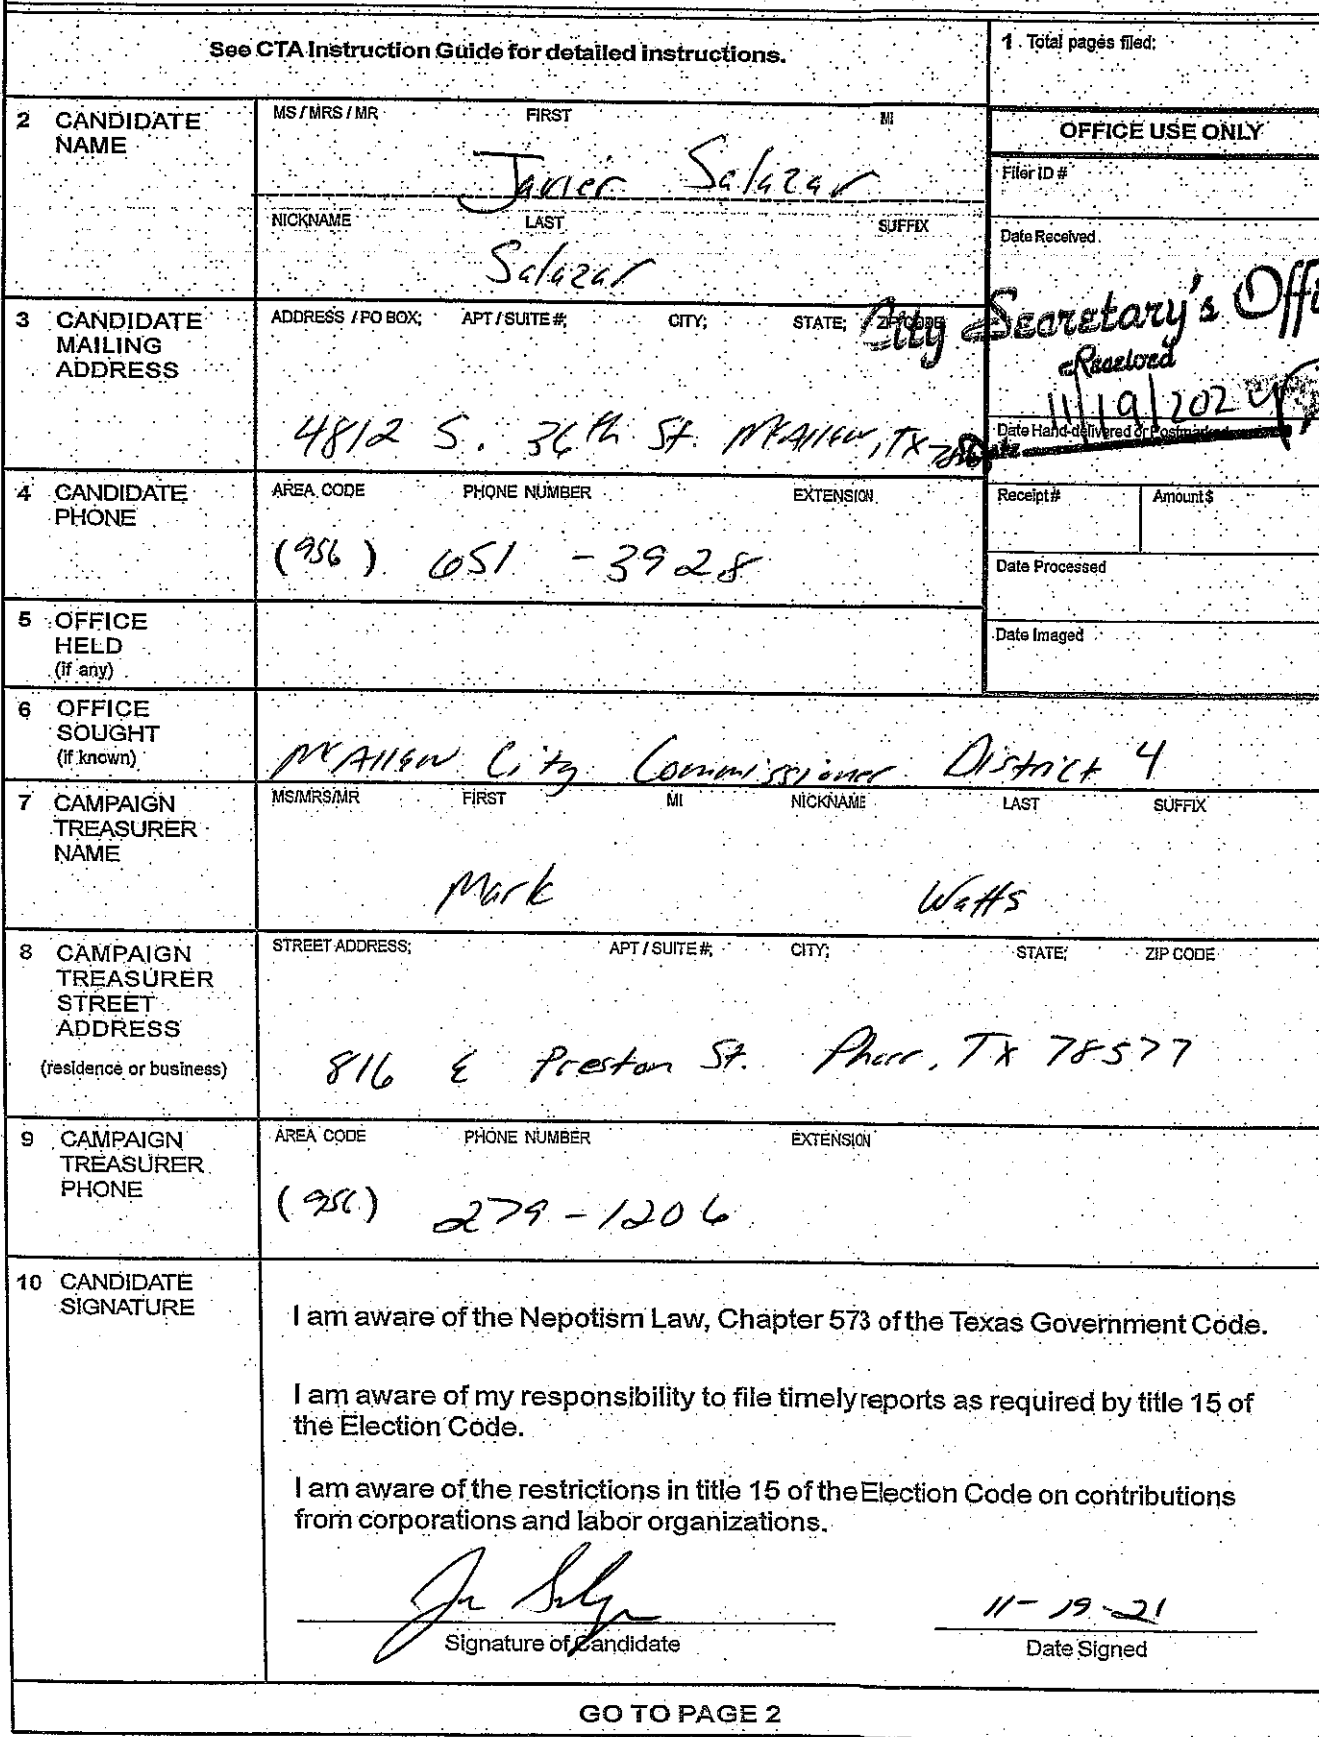 See CTA Instruction Guide for detailed instructions.
1 Total pages filed:
2 CANDIDATE NAME
MS / MRS / MR FIRST MI
Javier Salazar
NICKNAME LAST SUFFIX
Salazar
OFFICE USE ONLY
Filer ID #
Date Received
City Secretary's Offi
Received
11/19/202
Date Hand-delivered or Postmarked
3 CANDIDATE MAILING ADDRESS
ADDRESS / PO BOX; APT / SUITE #; CITY; STATE; ZIP CODE
4812 S. 36th St. McAllen, TX
4 CANDIDATE PHONE
AREA CODE PHONE NUMBER EXTENSION
(956) 651-3928
Receipt # Amount $
Date Processed
Date Imaged
5 OFFICE HELD (if any)
6 OFFICE SOUGHT (if known)
McAllen City Commissioner District 4
7 CAMPAIGN TREASURER NAME
MS/MRS/MR FIRST MI NICKNAME LAST SUFFIX
Mark Watts
8 CAMPAIGN TREASURER STREET ADDRESS
(residence or business)
STREET ADDRESS; APT / SUITE #; CITY; STATE; ZIP CODE
816 E Preston St. Pharr, TX 78577
9 CAMPAIGN TREASURER PHONE
AREA CODE PHONE NUMBER EXTENSION
(956) 279-1206
10 CANDIDATE SIGNATURE
I am aware of the Nepotism Law, Chapter 573 of the Texas Government Code.
I am aware of my responsibility to file timely reports as required by title 15 of
the Election Code.
I am aware of the restrictions in title 15 of the Election Code on contributions
from corporations and labor organizations.
11-19-21
Signature of Candidate Date Signed
GO TO PAGE 2